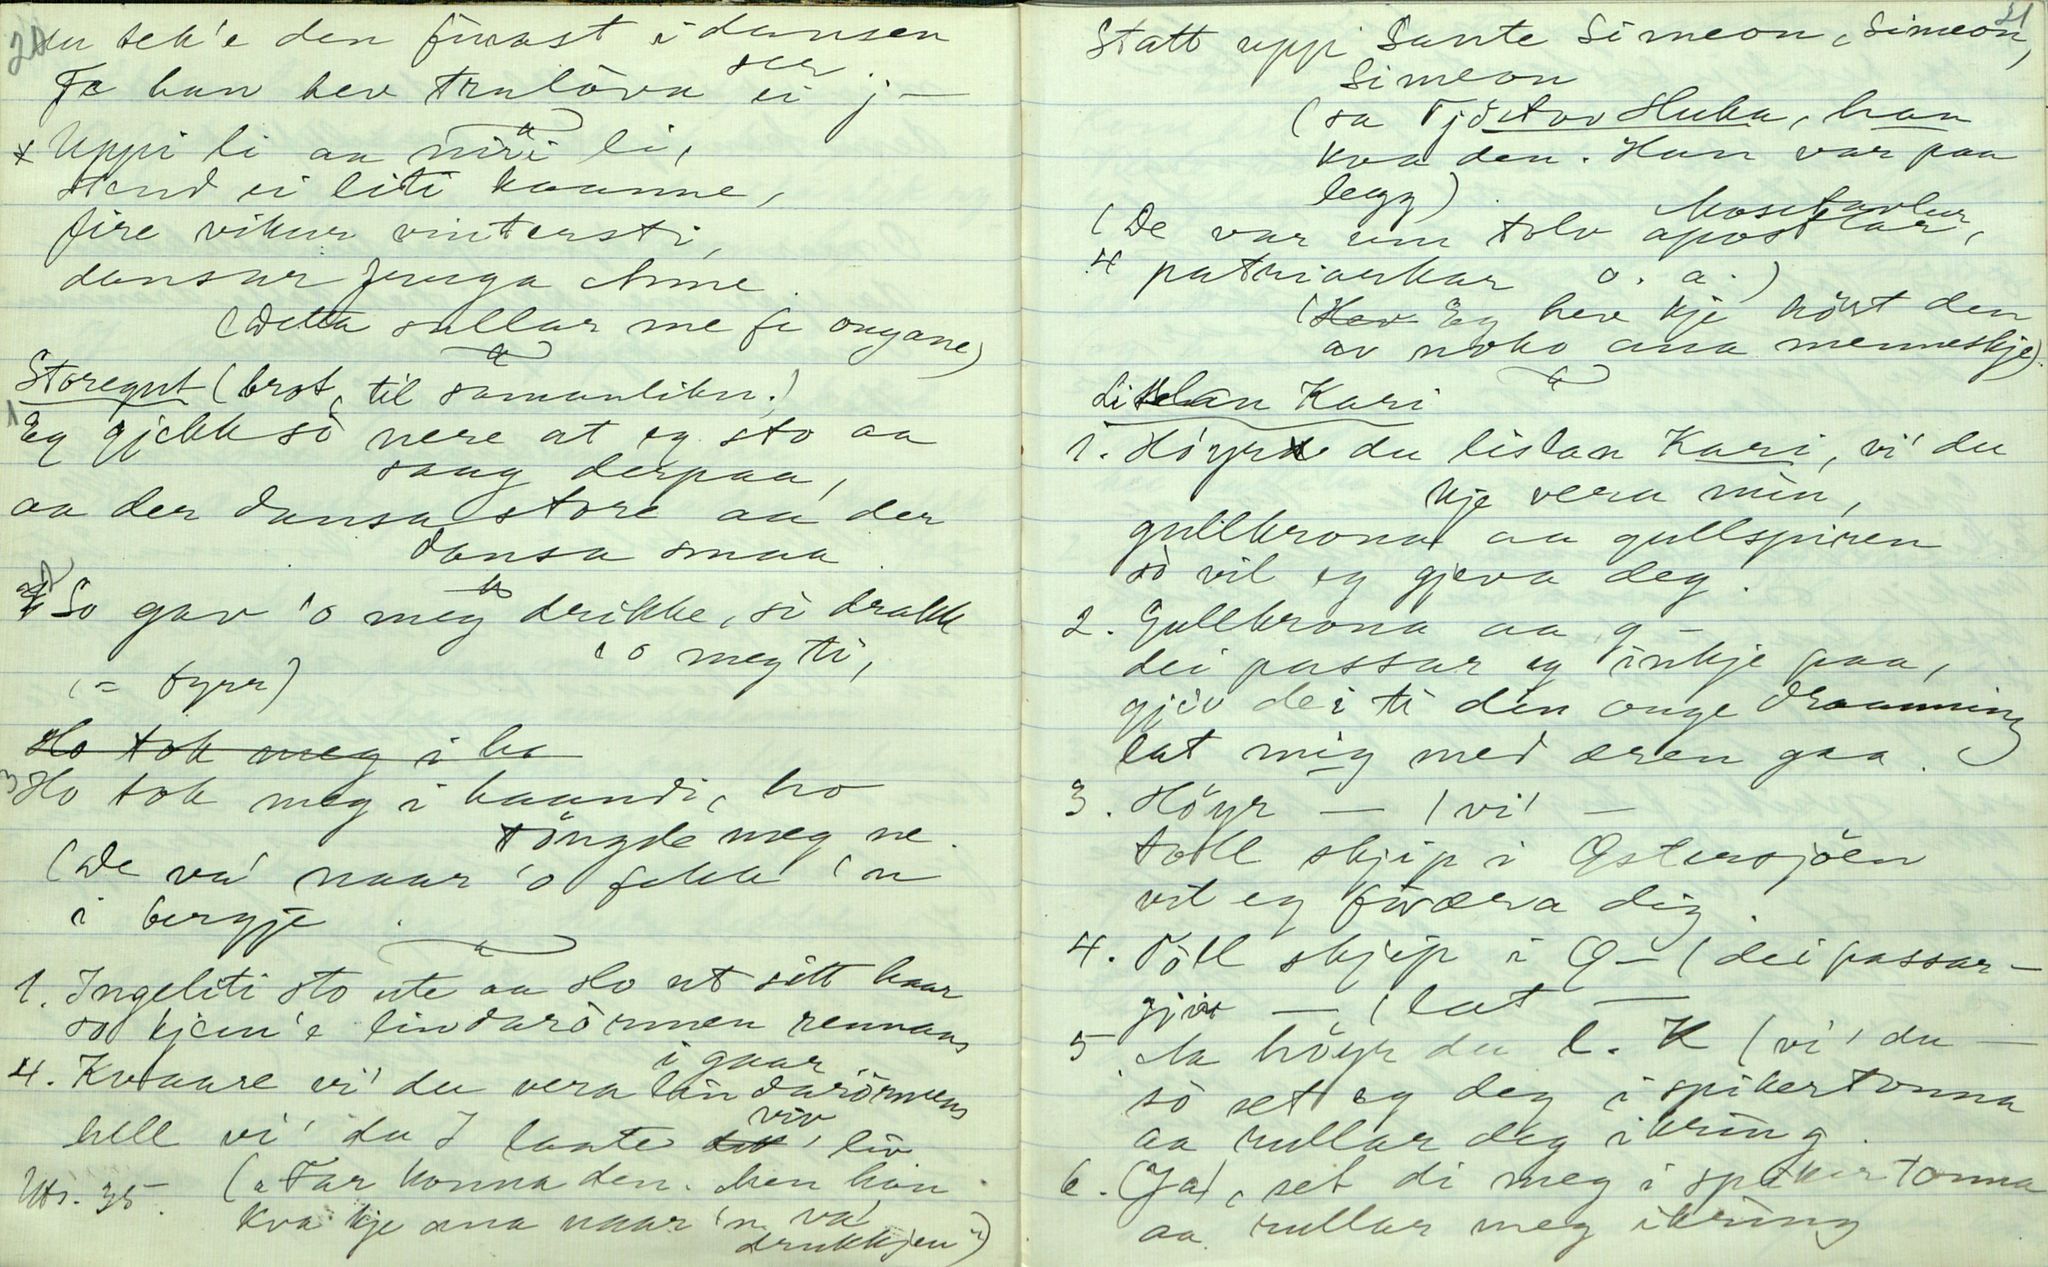 20
du tek'e den finast i dansen
Fe han hev trulova seg ei j —
* Uppi li aa niri li,
stend ei liti kaanne,
fire vikur vintersti,
dansur junga Anne.
(Detta sullar me fe ongane)
Storegut (brot, til samanlikn.)
1 Eg gjekk so nere at eg sto aa
saag derpaa,
aa der dansa store aa der
dansa smaa
2 So gav 'o meg drikke, si drakk
'o meg ti,
(= fyrr)
Ho tok meg i ha
3 Ho tok meg i haandi, ho
töngde meg ne.
(De va' naar 'o fekk 'n
i bergje.
1. Ingeliti sto ute aa slo ut sitt haar
so kjem'e lindarörmen rennans
i gaar
4. Kvaare vi' du vera lindarörmens
viv
hell vi' du I laate dit liv
Uts. 35. ("Far kunna den. Men han
kva kje ana naar 'n va'
drukkjen")
21
Statt uppi Sante Simeon, Simeon,
Simeon
(sa Tjöstov Huka, han
kva den. Han var paa
legg)
(De var um tolv apostlar, Mosetavlur
4 patriarkar o. a.)
(Hev Eg hev kje höirt den
av noko ana menneskje)
Lislan Kari
1. Höyre du lislan Kari, vi' du
kje vera min,
gullkrona aa gullspiren
so vil eg gjeva deg.
2. Gullkrona aa g —
dei passar eg inkje paa,
gjiv dei ti din onge draanning
lat mig med æren gaa.
3. Höyr — ( vi' —
toll skjip i Östersjöen
vil eg foræra dig.
4. Toll skjip i Ö — ( dei passar —
gjiv — ( lat —
5 Aa höyr du l. K ( vi' du —
so set eg deg i spikertonna
aa rullar deg ikring.
6. (Ja), set di meg i spikertonna
aa rullar meg ikring